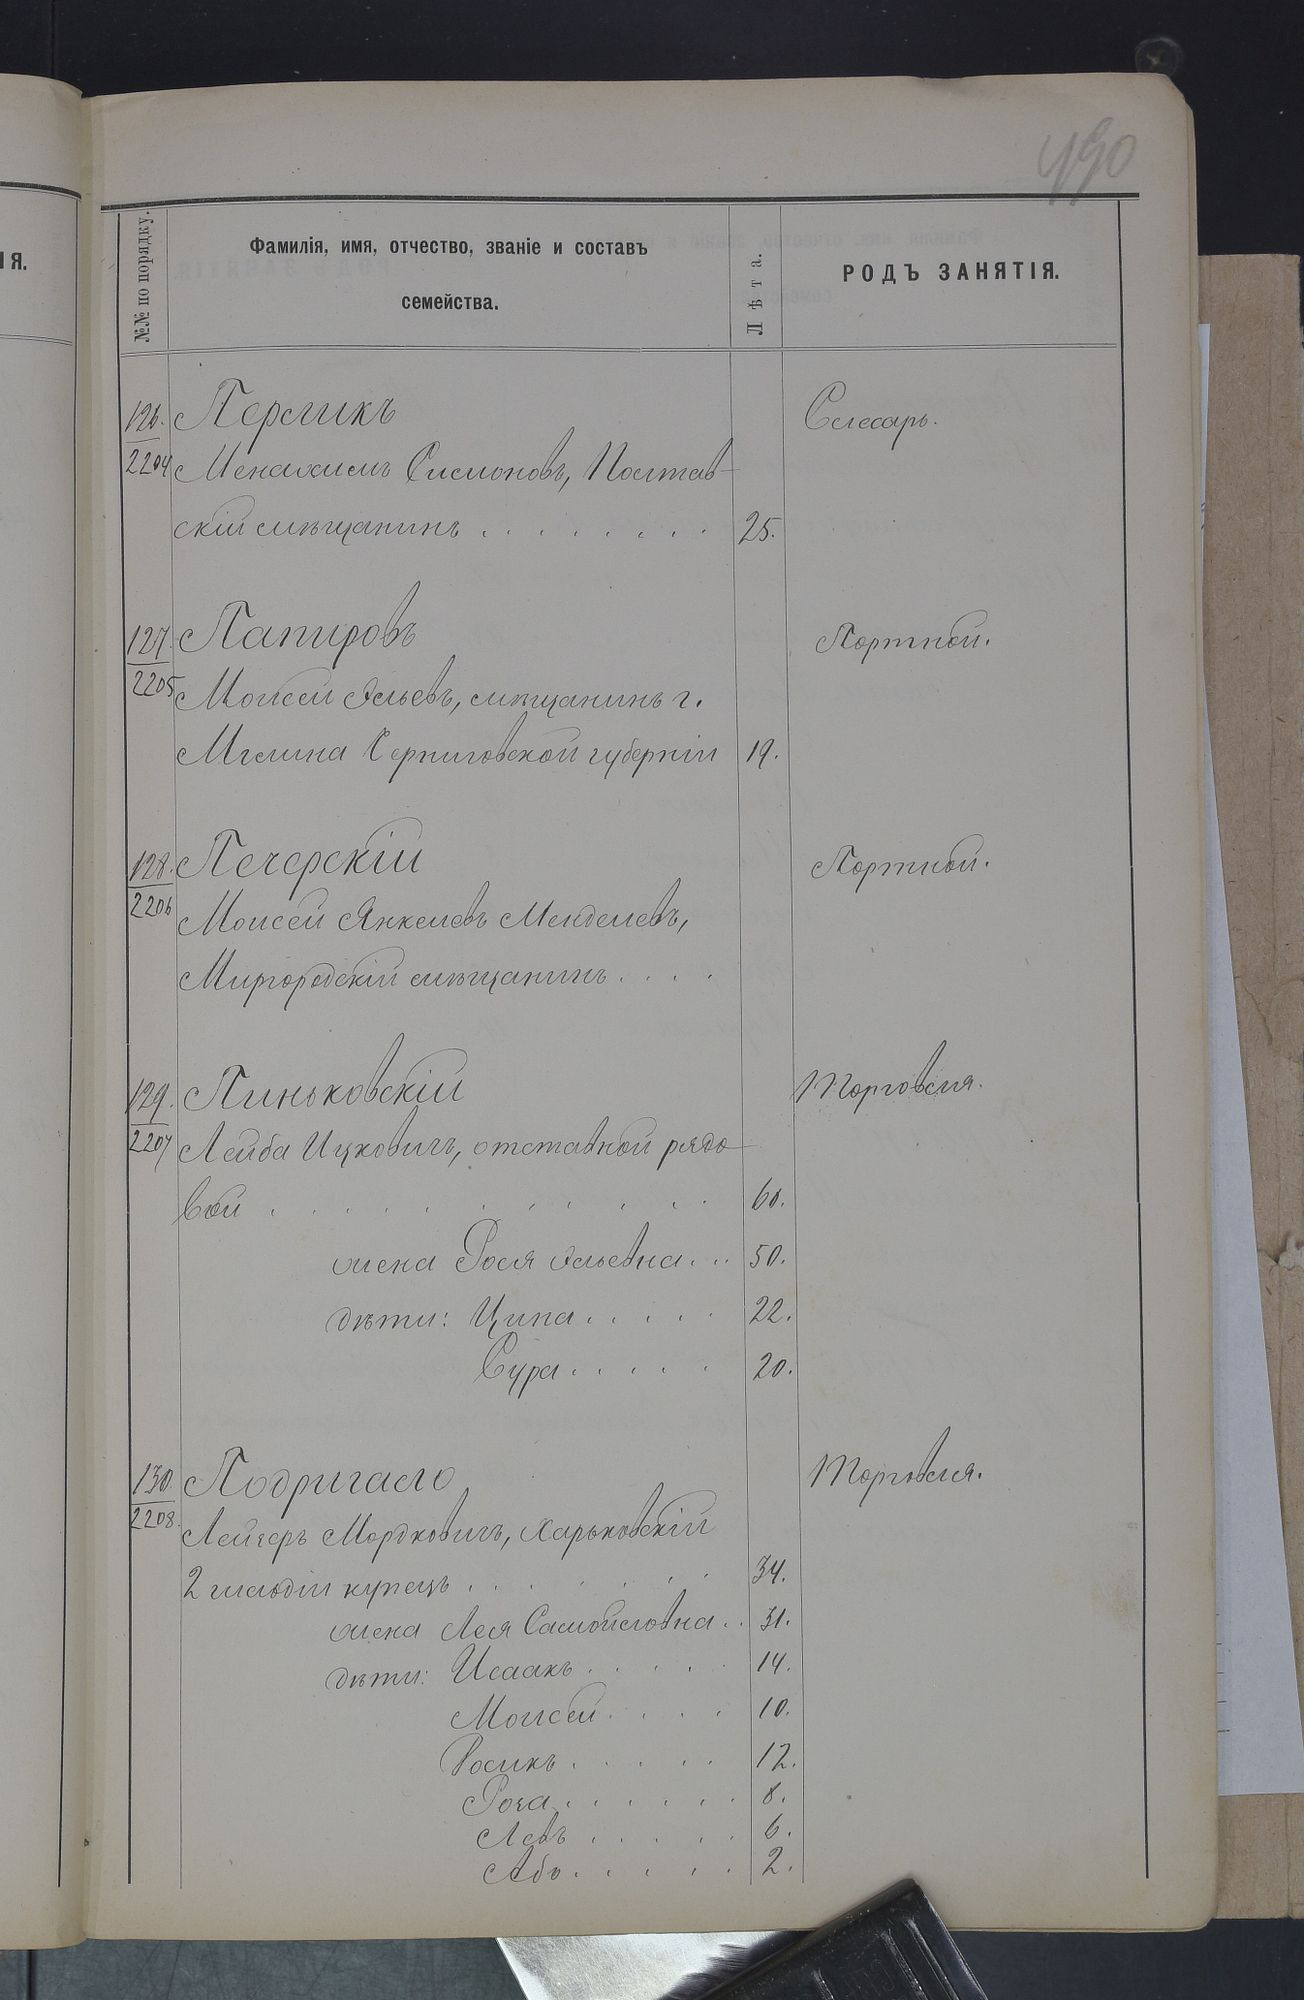 490
ІЯ.
№№ по порядку.
Фамилія, имя, отчество, званіе и составъ
семейства.
Лѣта.
РОДЪ ЗАНЯТІЯ.
126. Перликъ Слесарь.
2204 Менахимъ Симоновъ, Полтав-
скій мѣщанинъ . . . . . . . 25.
127. Папировъ Портной.
2205 Моисей Эльевъ, мѣщанинъ г.
Мглина Черниговской губерніи 19.
128. Печерскій Портной.
2206 Моисей Янкелевъ Менделевъ,
Миргородскій мѣщанинъ . . . .
129. Пиньковскій Торговля.
2207 Лейба Ицковичъ, отставной рядо-
вой . . . . . . . . . . . 60.
жена Рося Эльевна . . . 50.
дѣти: Ципа . . . . . 22.
Сура . . . . . 20.
130. Подригало Торговля.
2208. Лейзеръ Мордковичъ, Харьковскій
2 гильдіи купецъ . . . . . . . 34.
жена Лея Самойловна . . 31.
дѣти: Исаакъ . . . . . 14.
Моисей . . . . 10.
Іосикъ . . . . . 12.
Роза . . . . . . 8.
Левъ . . . . . 6.
Абъ . . . . . 2.